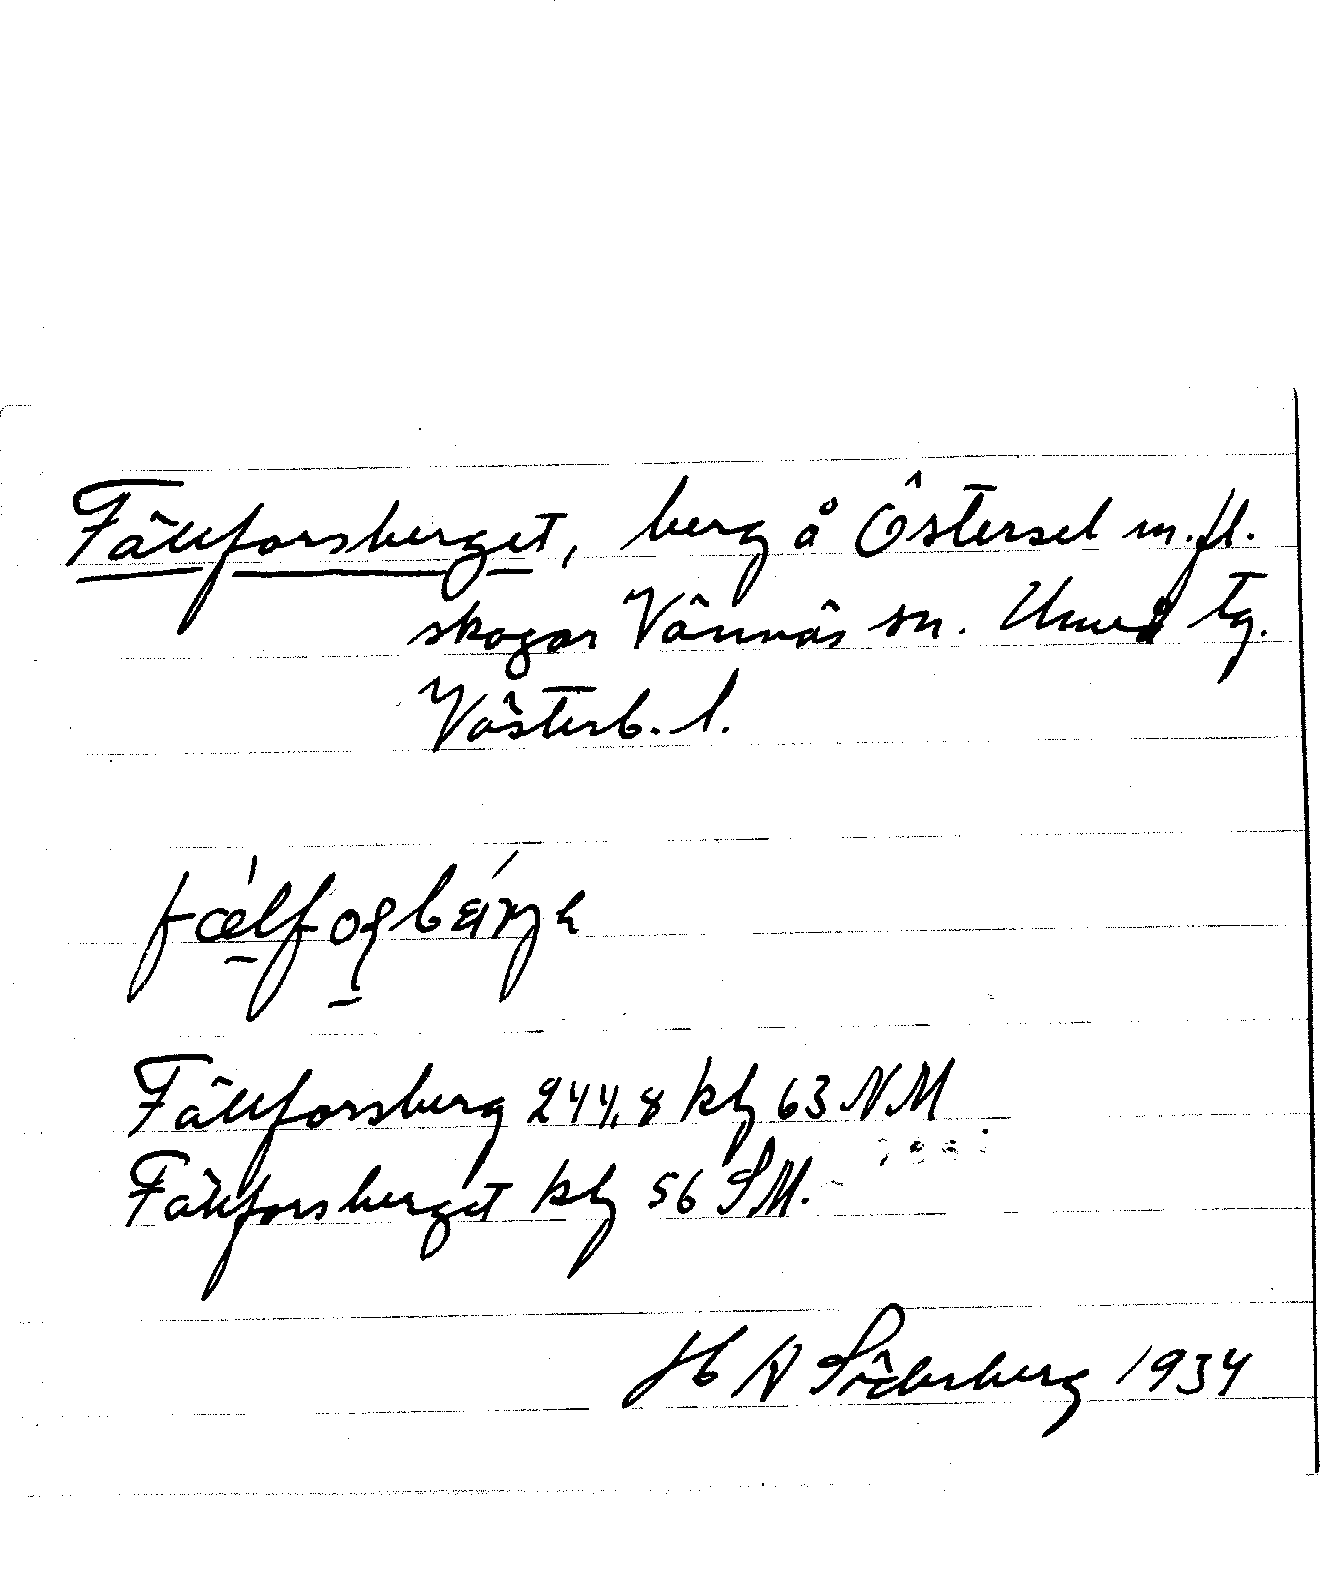 Fällforsberget, berg å Östersel m.fl.
skogar Vännäs sn. Umeå tg.
Västerb. l.
Fällforsberg 244,8 kbl 63 NM
Fällforsberget kbl 56 SM.
H A Söderberg 1934